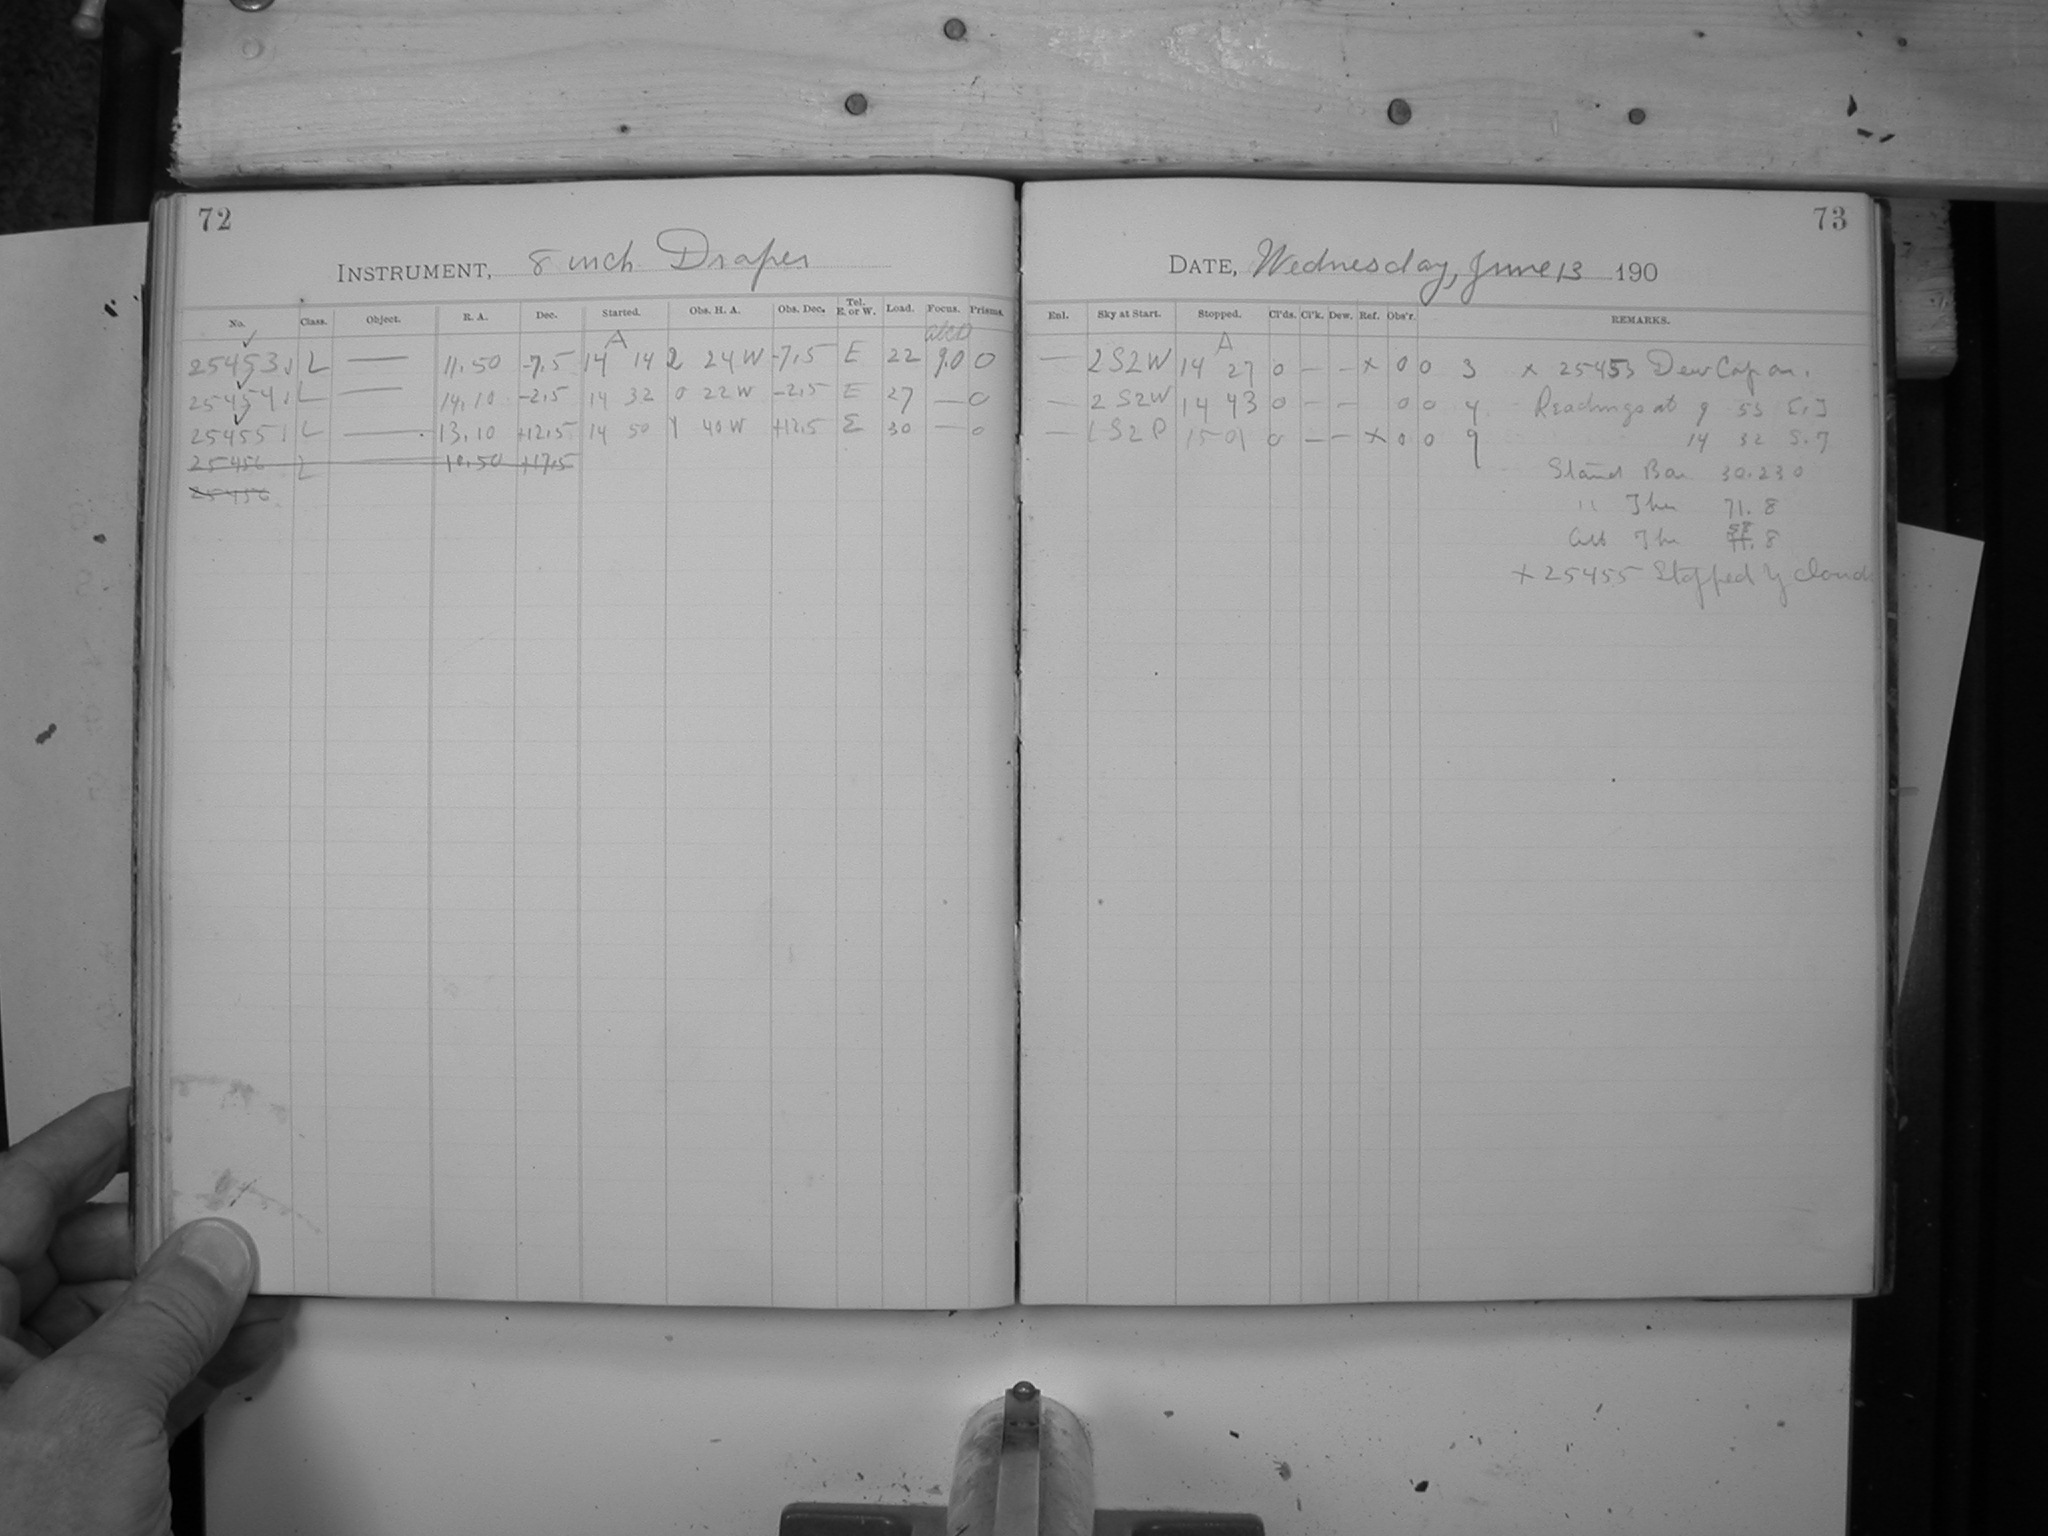 72
INSTRUMENT, 8 inch Draper
No. Class. Object. R. A. Dec. Started. Obs. H. A. Obs. Dec. Tel. E. or W. Load. Focus. Prisms.
A
25453 L — 11.50 -7.5 14 14 2 24 W -7.5 E 22 9.0 0
25454 L — 14.10 -2.5 14 32 0 22 W -2.5 E 27 — 0
25455 L — 13.10 +12.5 14 50 1 40 W +12.5 E 30 — 0
25456 L — 10.50 +17.5
25456
73
DATE, Wednesday, June 13 190
Enl. Sky at Start. Stopped. Cl'ds. Cl'k. Dew. Ref. Obs'r. REMARKS.
A
— 2 S2W 14 27 0 — — x 0 0 3 x 25453 Dew Cap on.
— 2 S2W 14 43 0 — — 0 0 4 Readings at 9 53
— 1 S2P 15 01 0 — — x 0 0 9 14 32 S.T
Stand Bar 30.230
" Ther 71.8
Att Ther 58.8
x 25455 Stopped by clouds